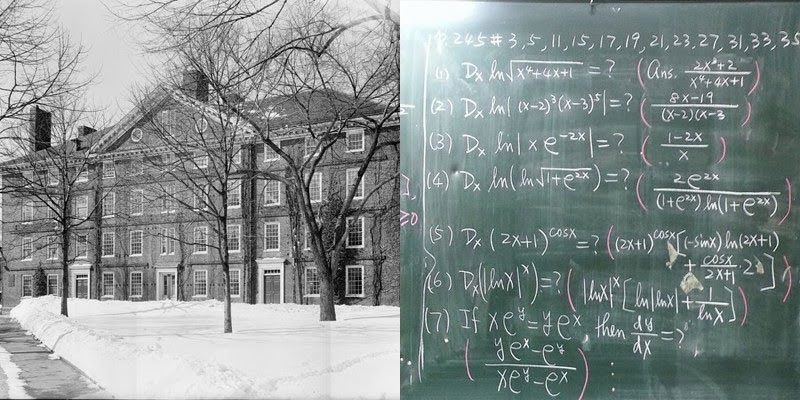 p.245 # 3, 5, 11, 15, 17, 19, 21, 23, 27, 31, 33, 35
(1) Dx ln√(x⁴+4x+1) = ? (Ans. (2x³+2)/(x⁴+4x+1))
(2) Dx ln|(x-2)³(x-3)⁵| = ? ((8x-19)/((x-2)(x-3))
(3) Dx ln|x e^(-2x)| = ? ((1-2x)/x)
(4) Dx ln(ln√(1+e^(2x))) = ? (2e^(2x)/((1+e^(2x)) ln(1+e^(2x))))
(5) Dx (2x+1)^cosx = ? ((2x+1)^cosx [(-sinx) ln(2x+1)
+ cosx/(2x+1) · 2])
(6) Dx(|lnx|^x) = ? (|lnx|^x [ln|lnx| + 1/lnx])
(7) If xe^y = ye^x then dy/dx = ?
((ye^x - e^y)/(xe^y - e^x))